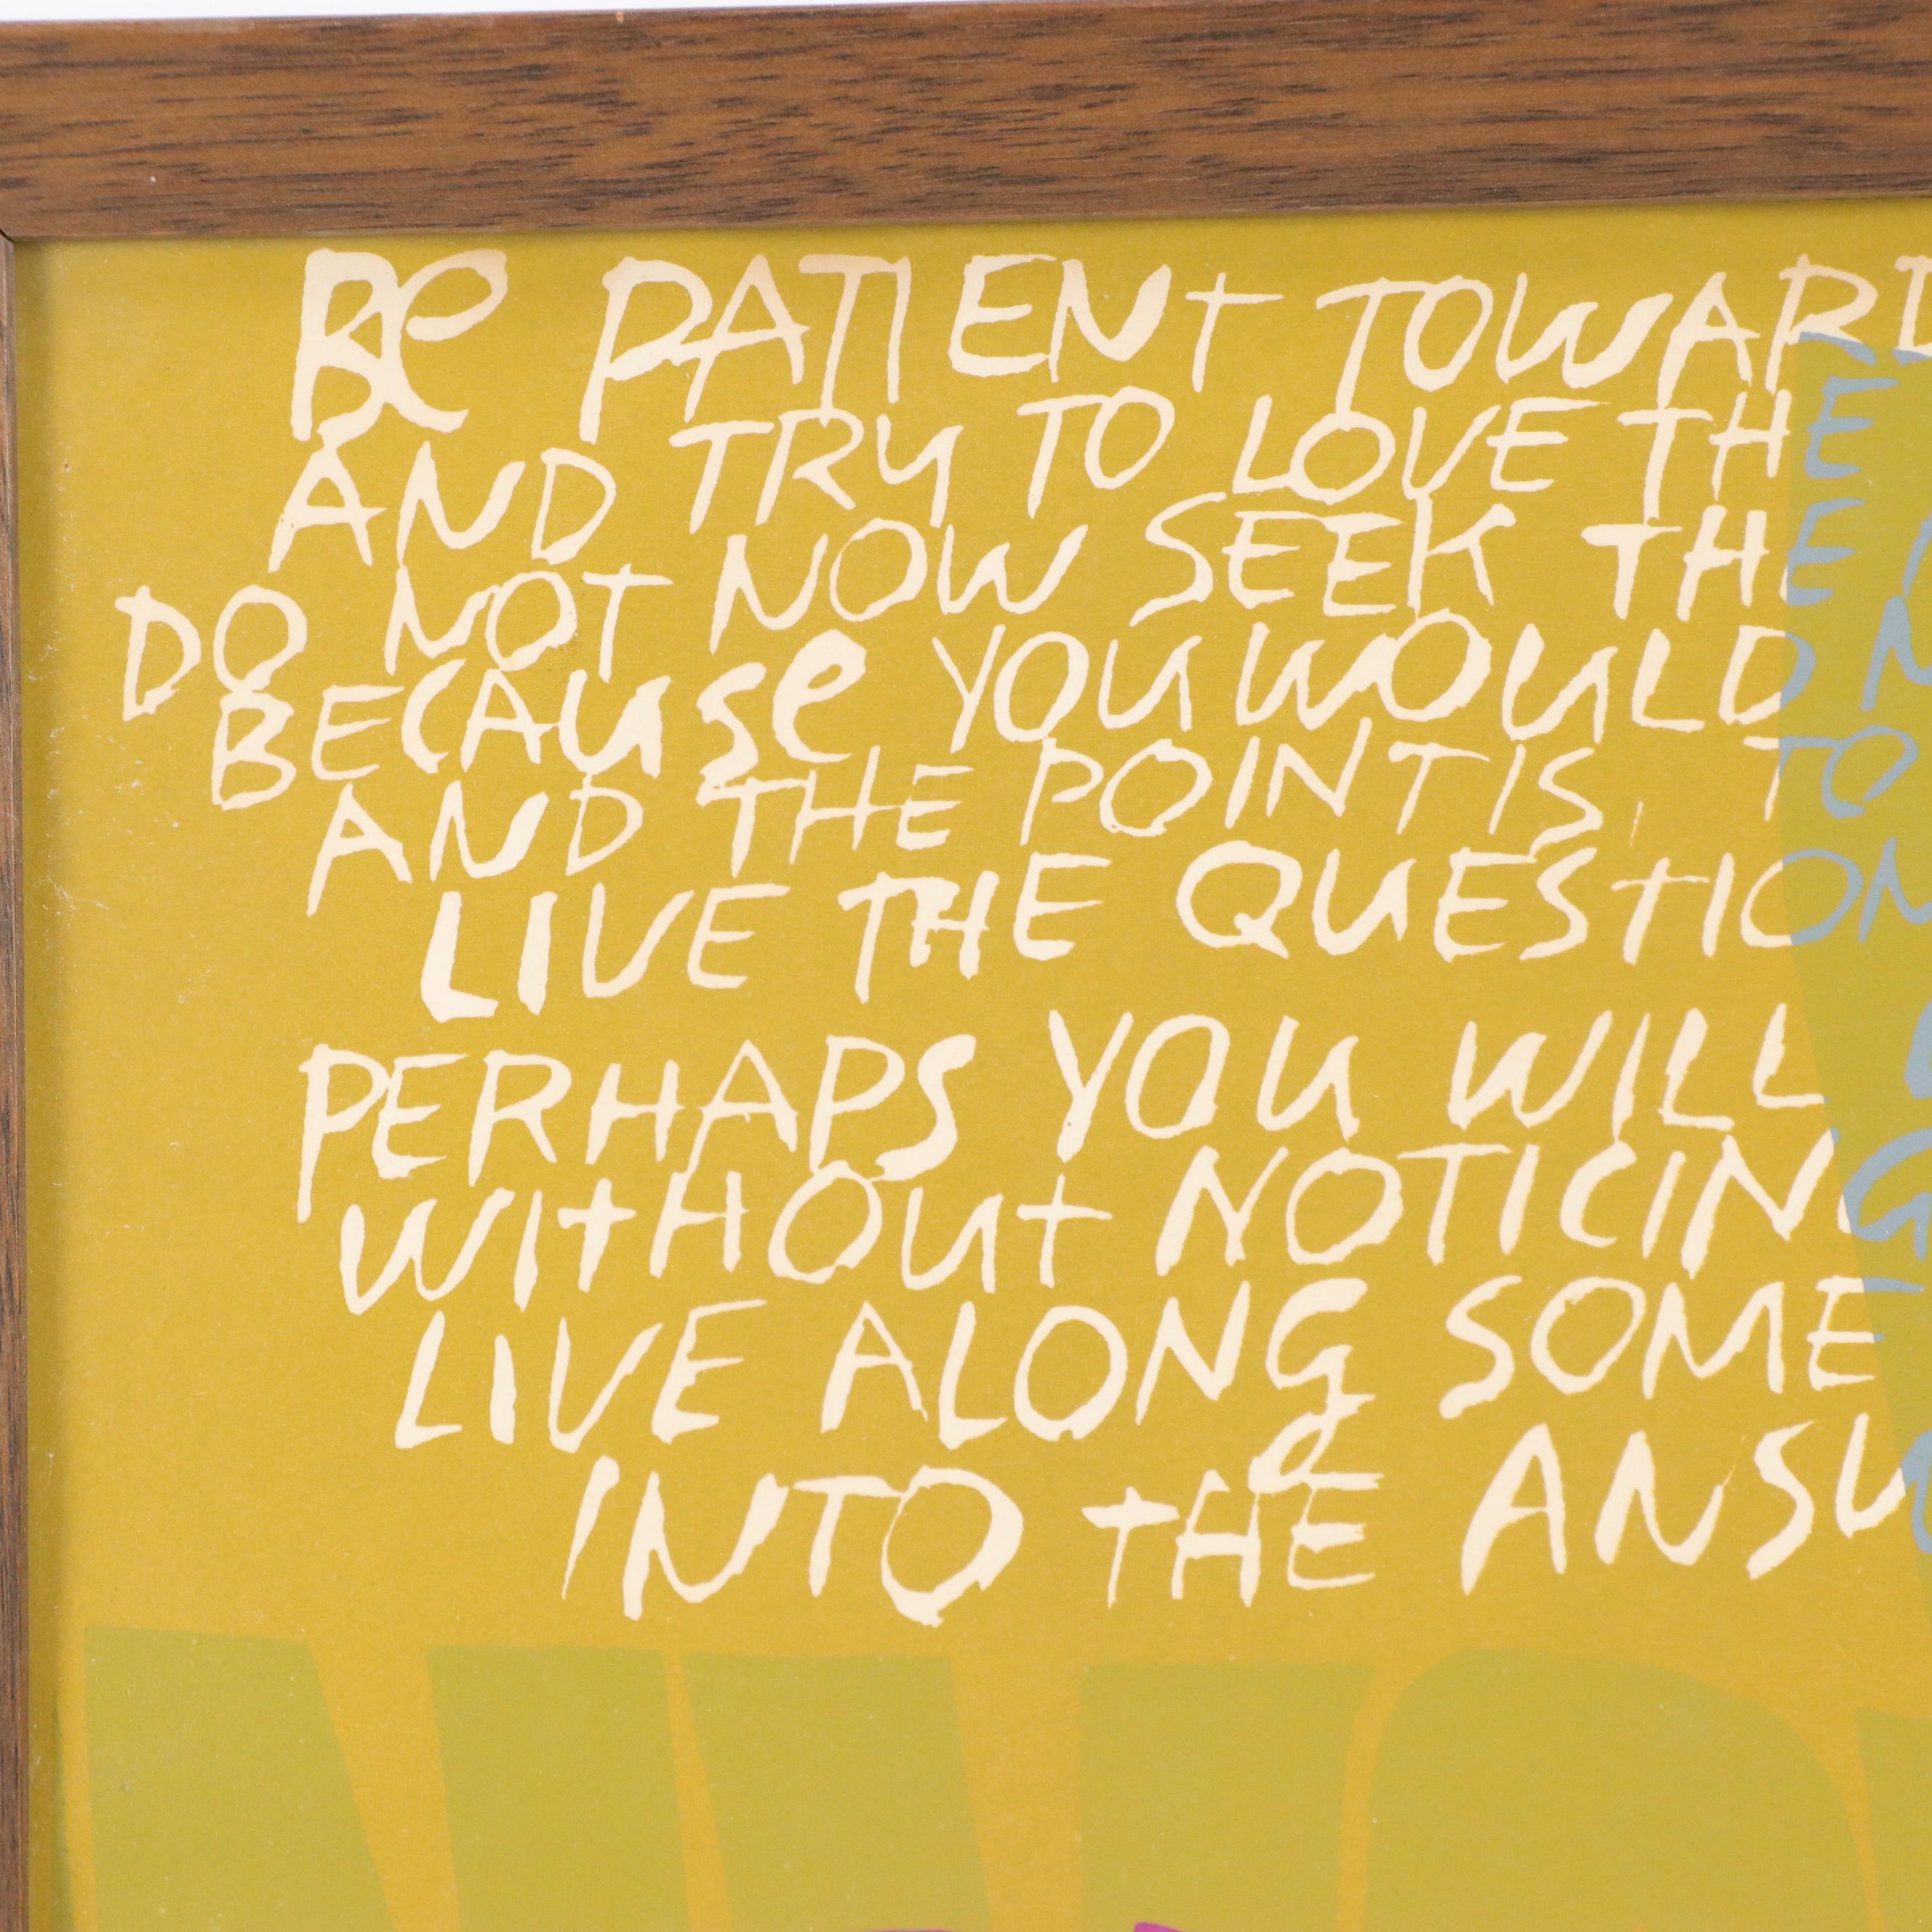 Be PATIENt TOWARD
AND TRY TO LOVE THE
DO NOT NOW SEEK THE
BECAuse YOU WOULD N
AND THE POINT IS, TO
LIVE THE QUESTION
PERHAPS YOU WILL
WItHOUt NOTICING
LIVE ALONG SOME
INTO tHE ANSW